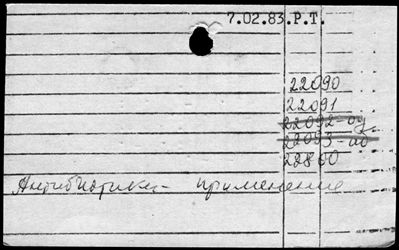 7.02.83.Р.Т.
22090
22091
22092-оу
22093-ио
22800
Антибиотики - применение